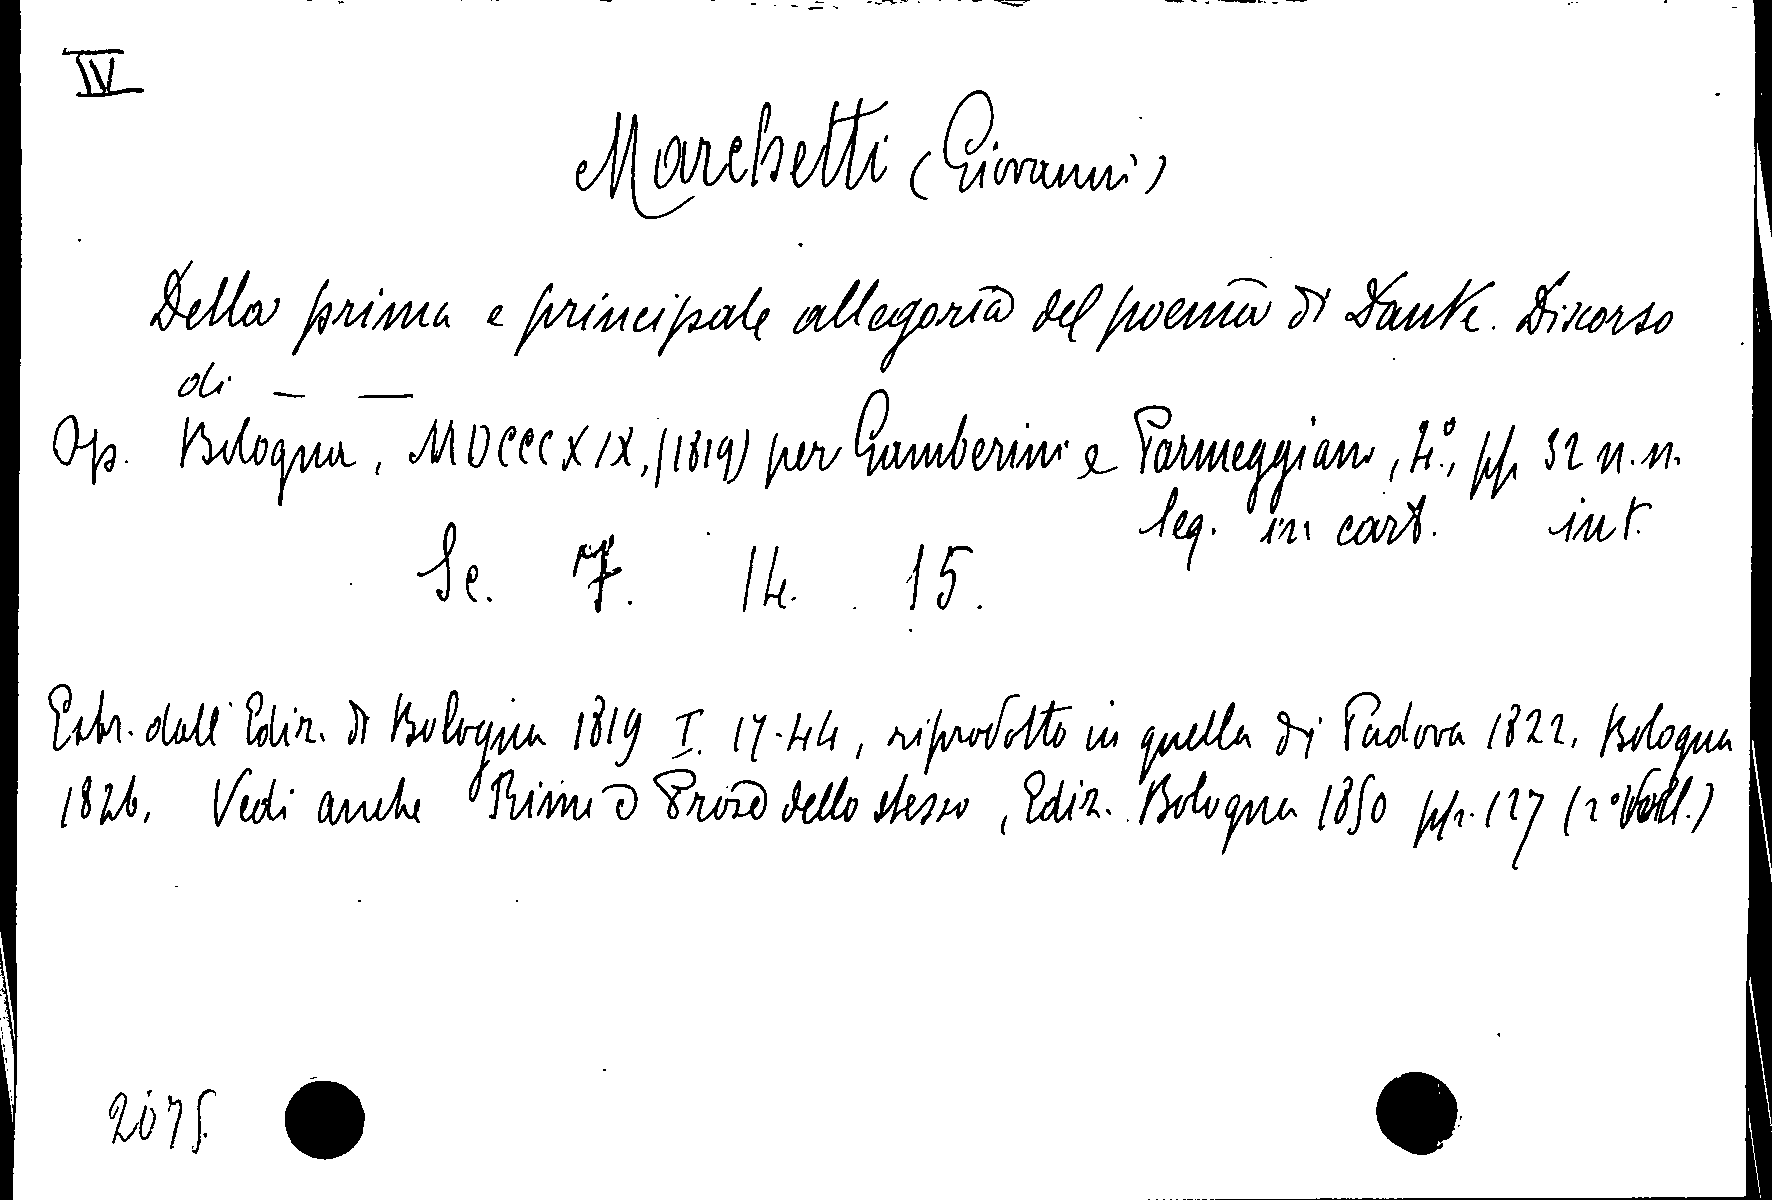 IV
Marchetti (Giovanni)
Della prima e principale allegoria del poema di Dante. Discorso
di — —
Op. Bologna, MDCCCXIX, (1819) per Gamberini e Parmeggiani, 4°, pp. 32 n.n.
leg. in cart. int.
Sc. 7. 14. 15.
Estr. dall'Ediz. di Bologna 1819 I. 17-44, riprodotto in quella di Padova 1822. Bologna
1826. Vedi anche Rime e Prose dello stesso, Ediz. Bologna 1850 pp. 127 (2° Vol.)
2075.